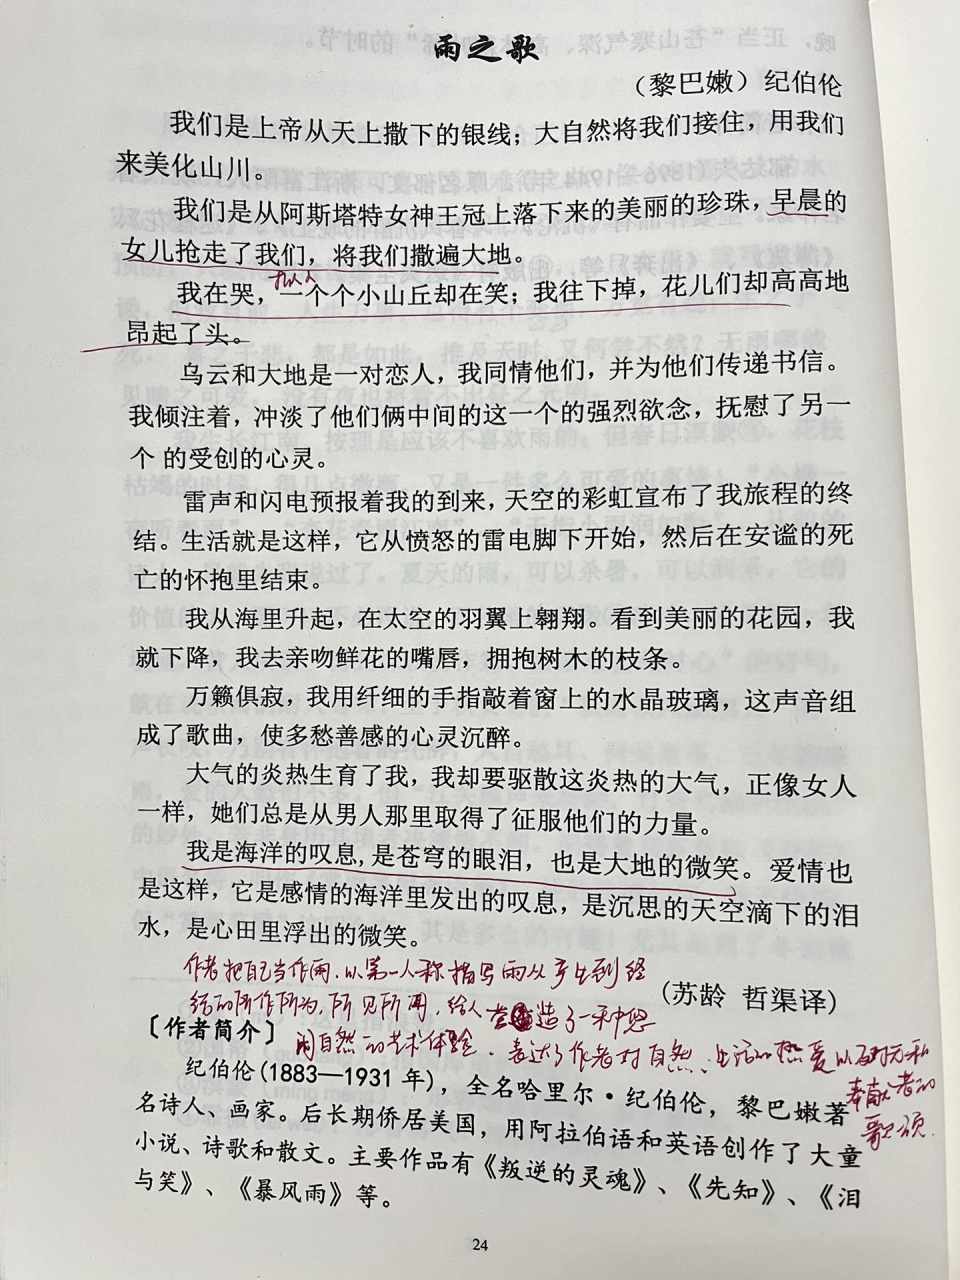 雨之歌
（黎巴嫩）纪伯伦
我们是上帝从天上撒下的银线；大自然将我们接住，用我们
来美化山川。
我们是从阿斯塔特女神王冠上落下来的美丽的珍珠，早晨的
女儿抢走了我们，将我们撒遍大地。
拟人
我在哭，一个个小山丘却在笑；我往下掉，花儿们却高高地
昂起了头。
乌云和大地是一对恋人，我同情他们，并为他们传递书信。
我倾注着，冲淡了他们俩中间的这一个的强烈欲念，抚慰了另一
个 的受创的心灵。
雷声和闪电预报着我的到来，天空的彩虹宣布了我旅程的终
结。生活就是这样，它从愤怒的雷电脚下开始，然后在安谧的死
亡的怀抱里结束。
我从海里升起，在太空的羽翼上翱翔。看到美丽的花园，我
就下降，我去亲吻鲜花的嘴唇，拥抱树木的枝条。
万籁俱寂，我用纤细的手指敲着窗上的水晶玻璃，这声音组
成了歌曲，使多愁善感的心灵沉醉。
大气的炎热生育了我，我却要驱散这炎热的大气，正像女人
一样，她们总是从男人那里取得了征服他们的力量。
我是海洋的叹息，是苍穹的眼泪，也是大地的微笑。爱情也
是这样，它是感情的海洋里发出的叹息，是沉思的天空滴下的泪
水，是心田里浮出的微笑。
作者把自己当作雨，以第一人称描写雨从产生到终
结的所作所为、所见所闻，给人营造了一种
（苏龄 哲渠译）
自然的艺术体验。表达了作者对自然、生活的热爱以及对无私
奉献者的
歌颂
〔作者简介〕
纪伯伦(1883—1931 年)，全名哈里尔·纪伯伦，黎巴嫩著
名诗人、画家。后长期侨居美国，用阿拉伯语和英语创作了大童
小说、诗歌和散文。主要作品有《叛逆的灵魂》、《先知》、《泪
与笑》、《暴风雨》等。
24